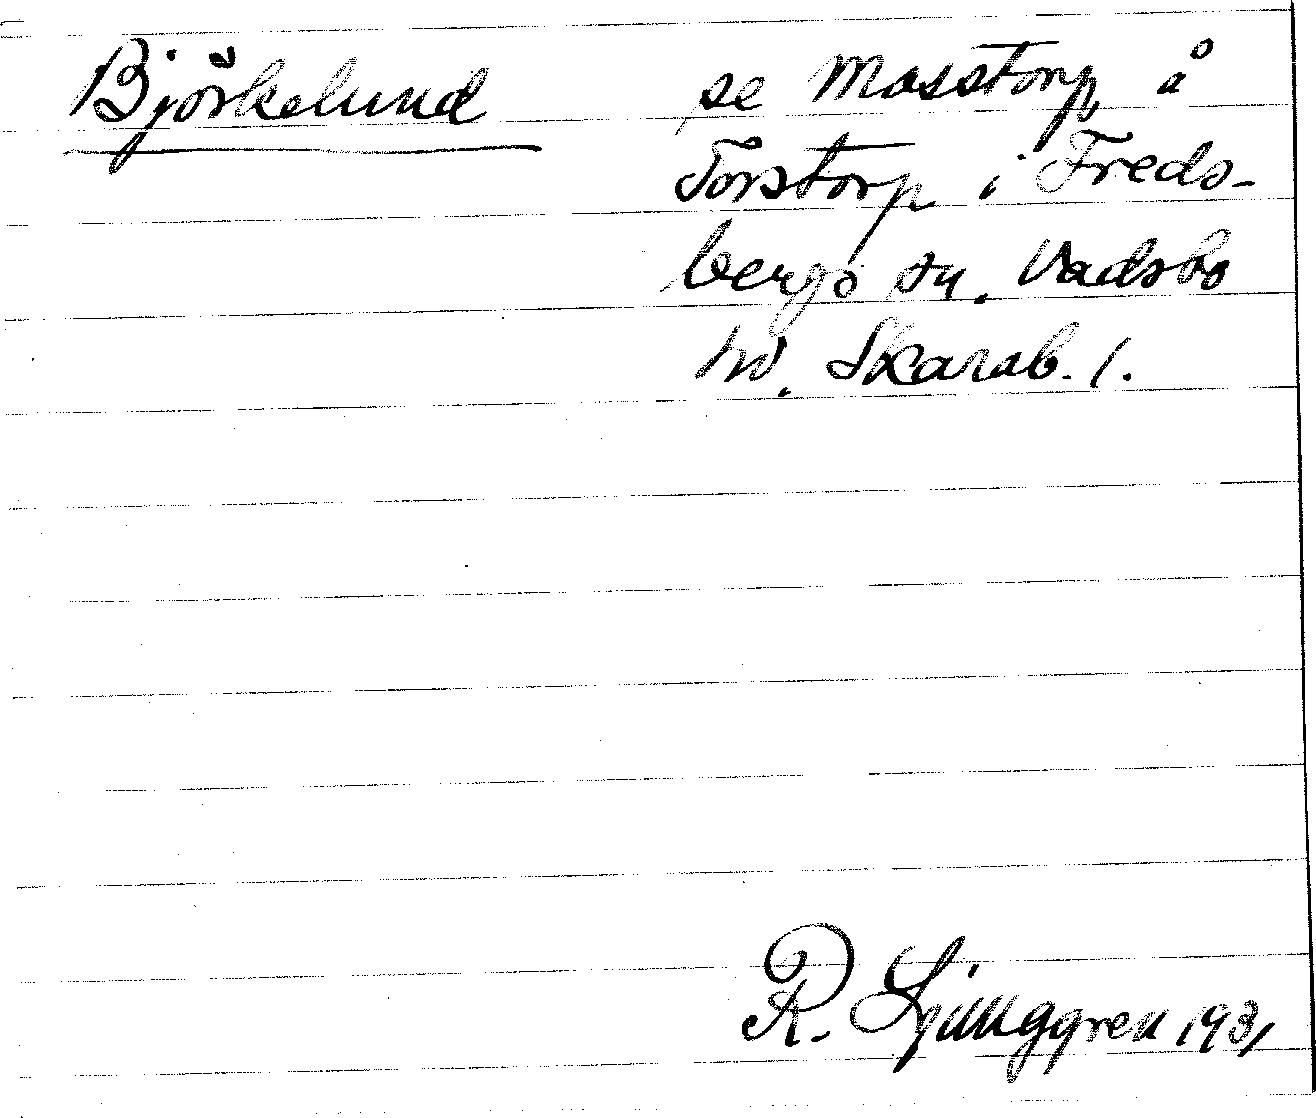 Björkelund
se Mosstorp å
Torstorp i Freds-
bergs sn. Vadsbo
hd. Skarab. l.
R. Ljunggren 1931